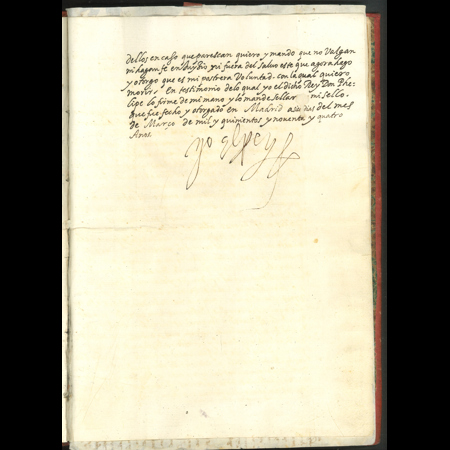 dellos en caso que parescan quiero y mando que no Valgan
ni hagan fe en Juyzio ni fuera del salvo este que agora hago
y otorgo que es mi postrera Voluntad. con la qual quiero
morir. En testimonio delo qual yo el dicho Rey Don Phe-
lipe lo firme de mi mano y lo mande sellar mi sello.
Que fue fecho y otorgado en Madrid a dias del mes
de Março de mil y quinientos y nouenta y quatro
Años.
yo el Rey